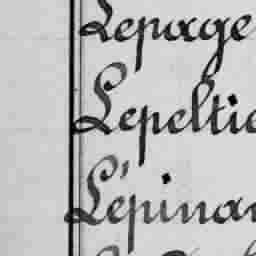 Lepage
Lepeltie
Lépinar